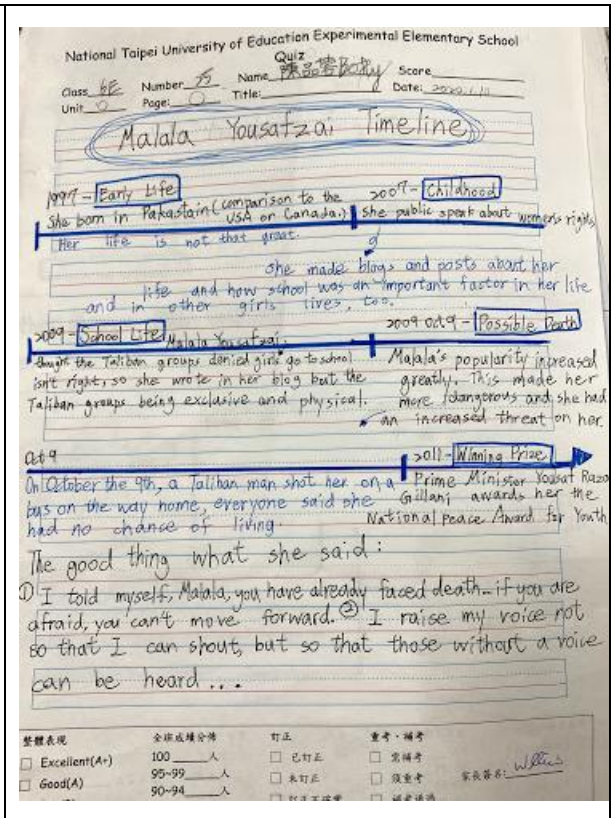 National Taipei University of Education Experimental Elementary School
Quiz
Class 6E Number Name Bobby Score
Unit 0 Page: 0 Title: Date: 2020.1.11
Malala Yousafzai Timeline
1997 - Early Life
She born in Pakastain (comparison to the USA or Canada.)
Her life is not that great.
2007 - Childhood
She public speak about women's rights,
she made blogs and posts about her
life and how school was an important factor in her life
and in other girls lives, too.
2009 - School Life Malala Yousafzai.
thought the Taliban groups denied girls go to school
isn't right, so she wrote in her blog but the
Taliban groups being exclusive and physical.
2009 oct.9 - Possible Death
Malala's popularity increased
greatly. This made her
more dangerous and she had
an increased threat on her.
Oct 9
On October the 9th, a Taliban man shot her on a
bus on the way home, everyone said she
had no chance of living.
2011 - Winning Prize
Prime Minister Yousaf Raza
Gillani awards her the
National peace Award for Youth
The good thing what she said:
① I told myself, Malala, you have already faced death... if you are
afraid, you can't move forward. ② I raise my voice not
so that I can shout, but so that those without a voice
can be heard ....
整體表現 全班成績分佈 訂正 重考・補考
□ Excellent(A+) 100 人 □ 已訂正 □ 需補考
□ Good(A) 95~99 人 □ 未訂正 □ 須重考 家長簽名:
90~94 人